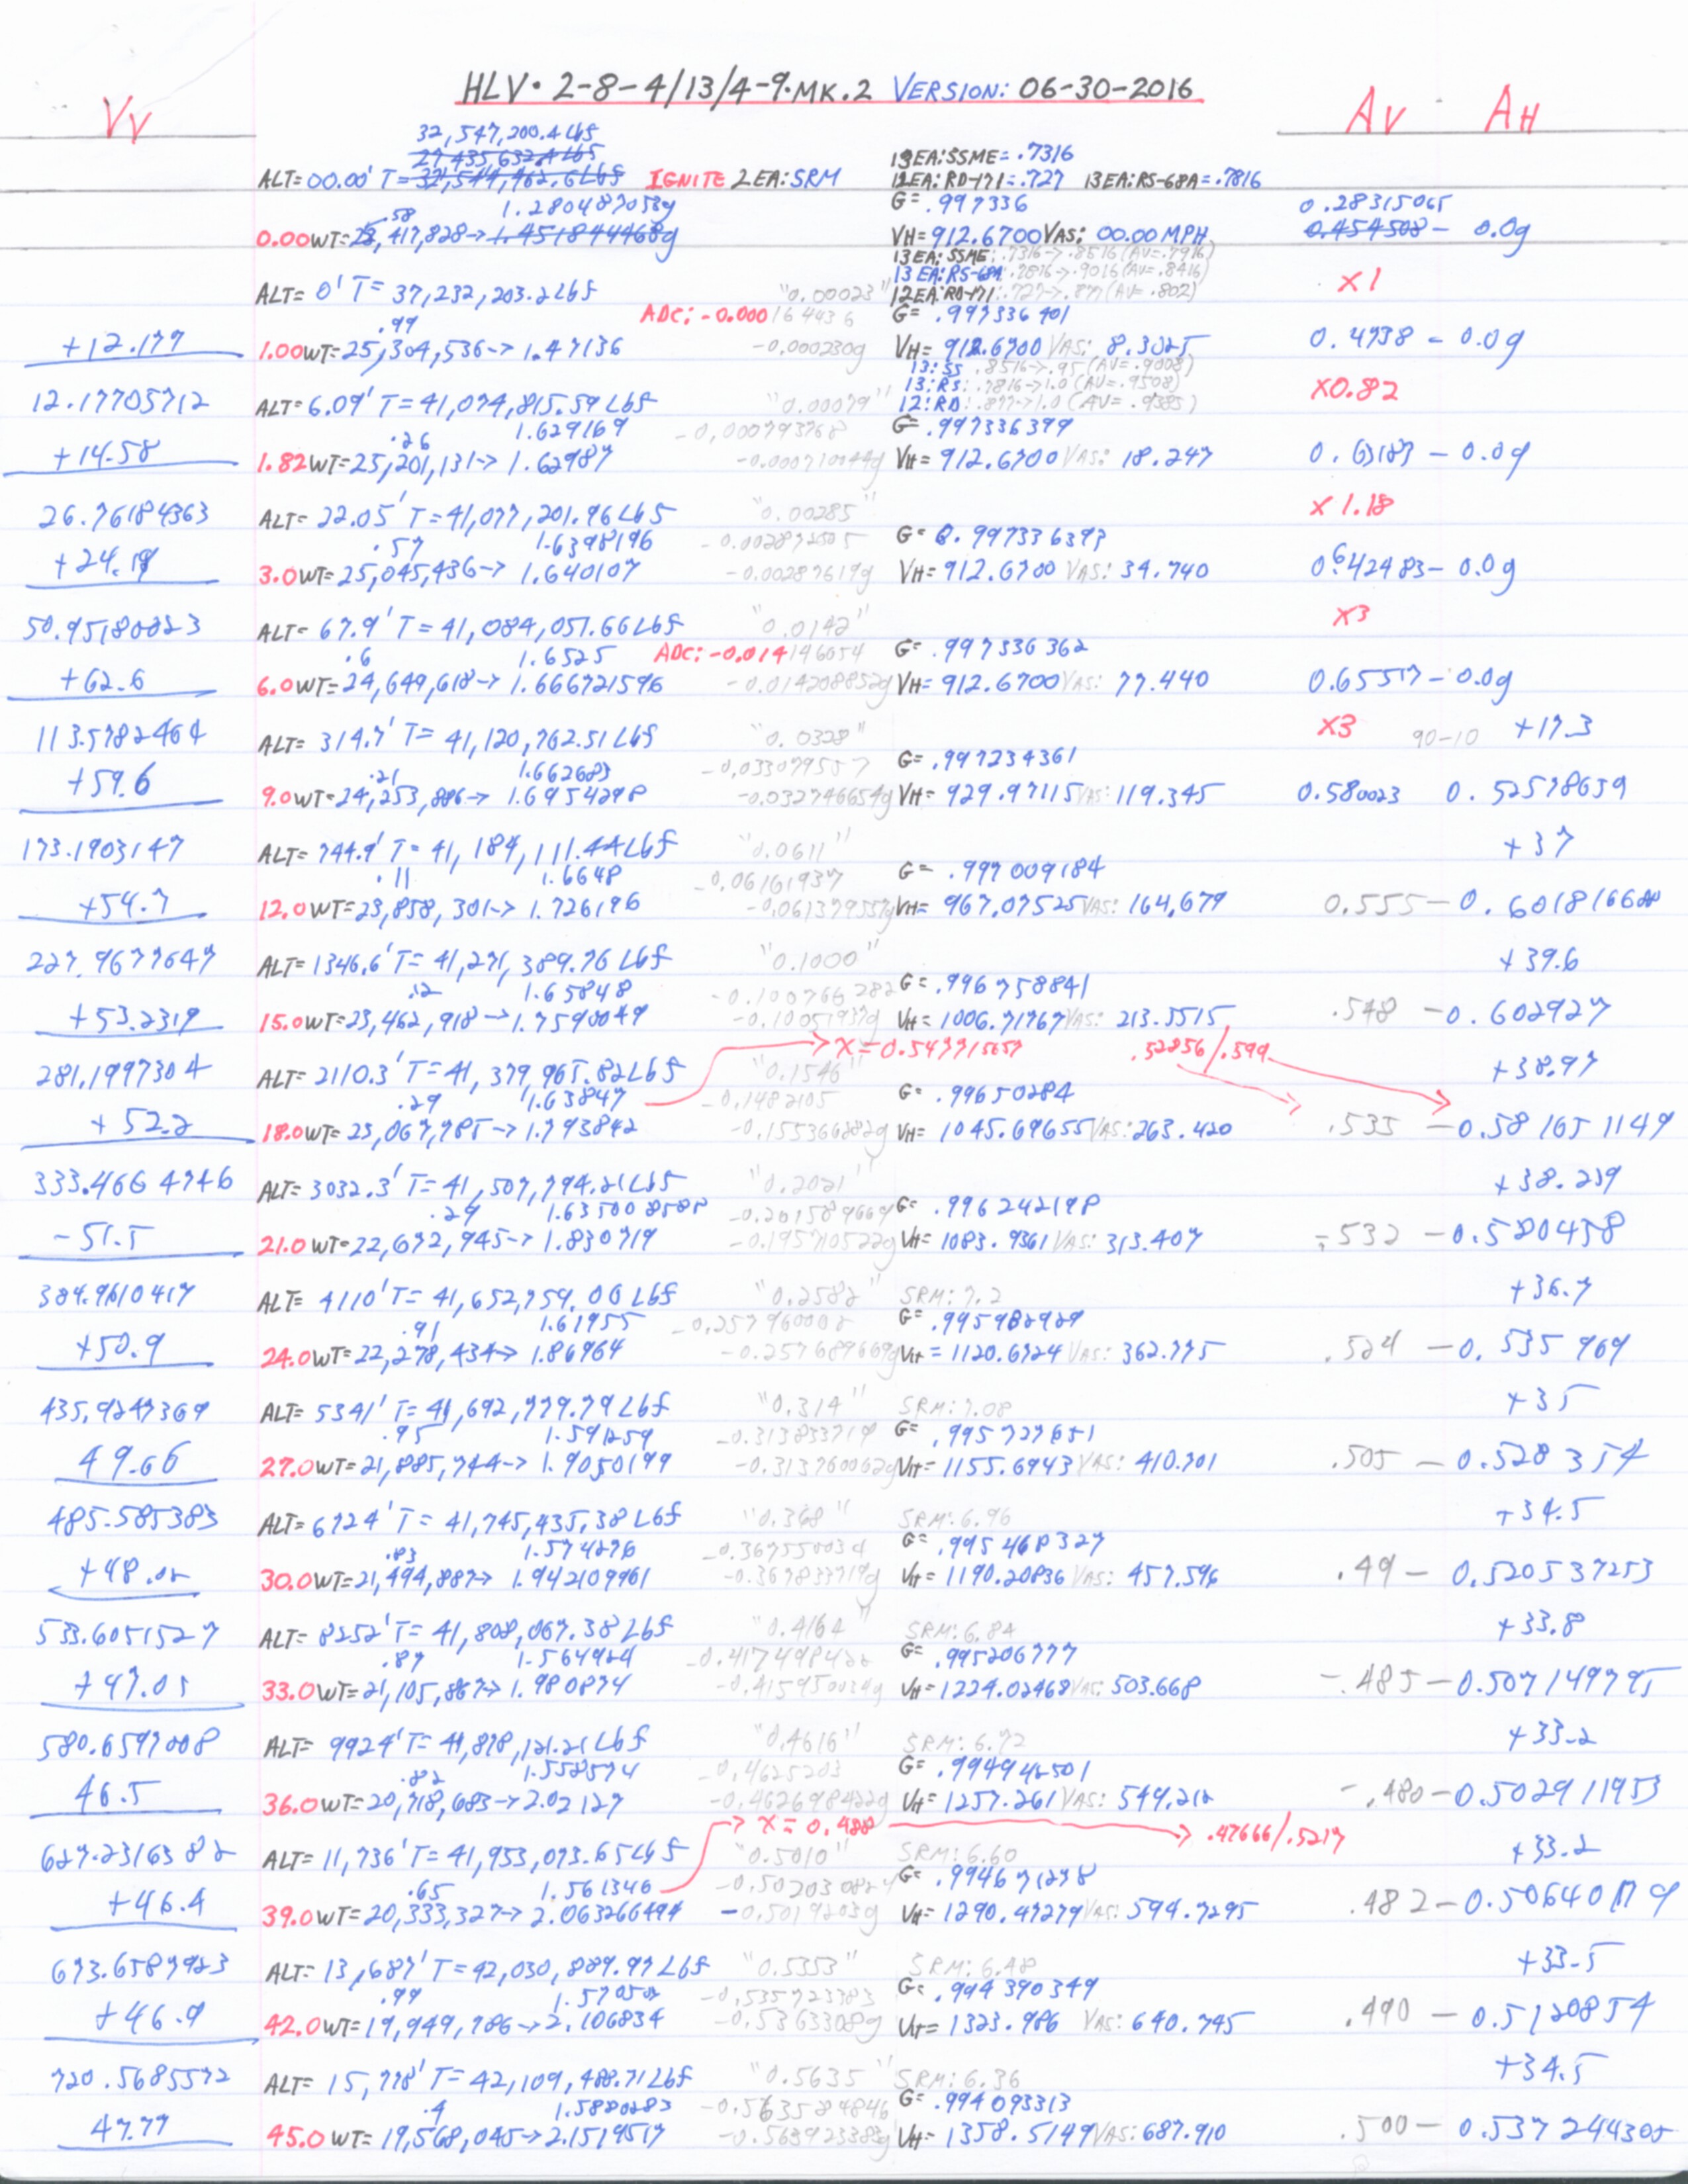 HLV· 2-8-4/13/4-9·MK.2 VERSION: 06-30-2016
VV AV - AH
32,547,200.4 Lbf
13EA:SSME=.7316
ALT=00.00' T= IGNITE 2EA:SRM 12EA:RD-171=.727 13EA:RS-68A=.7816
.58 1.280487058g G=.997336 0.28315065
0.00WT=25,417,828→ VH=912.6700 VAS: 00.00 MPH - 0.0g
13EA:SSME: .7316→.8516 (AV=.7916)
13EA:RS-68A: .7816→.9016 (AV=.8416)
ALT= 0' T= 37,232,203.2Lbf "0.00023" 12EA:RD-171: .727→.877 (AV=.802) X1
.99 ADC: -0.00016 4436 G= .997336401
+12.177 1.00WT=25,304,536→ 1.47136 -0.000230g VH= 912.6700 VAS: 8.3025 0.4738 - 0.0g
13:SS .8516→.95 (AV=.9008)
13:RS: .7816→1.0 (AV=.9508)
12.17705712 ALT= 6.09' T= 41,074,815.59 Lbf "0.00079" 12:RD: .877→1.0 (AV=.9385) X0.82
.26 1.629169 -0.000793768 G= .997336399
+14.58 1.82WT=25,201,131→ 1.62987 -0.000710044g VH= 912.6700 VAS: 18.247 - 0.0g
26.76184363 ALT= 22.05' T=41,077,201.96 Lbf "0.00285" X 1.18
.57 1.6398196 G= 0.997336393
+24.19 3.0WT=25,045,436→ 1.640107 -0.00287617g VH= 912.6700 VAS: 34.740 0.642483 - 0.0g
50.95180023 ALT= 67.9' T= 41,084,051.66 Lbf "0.0142" X3
.6 1.6525 ADC: -0.014146054 G= .997336362
+62.6 6.0WT=24,649,618→ 1.666721596 -0.014208852g VH= 912.6700 VAS: 77.440 0.65517 - 0.0g
113.5782464 ALT= 314.7' T= 41,120,762.51 Lbf "0.0328" X3 90-10 +17.3
.21 1.662683 -0.033079557 G= .997234361
+59.6 9.0WT=24,253,886→ 1.6954298 -0.032746654g VH= 929.97115 VAS: 119.345 0.580023 0.52578659
173.1903147 ALT= 744.9' T= 41,184,111.44 Lbf "0.0611" +37
.11 1.6648 -0.06161937 G= .997009184
+54.7 12.0WT=23,858,301→ 1.726196 -0.061379557g VH= 967.07525 VAS: 164.679 0.555 - 0.601816688
227.9677647 ALT= 1346.6' T= 41,271,389.76 Lbf "0.1000" +39.6
.12 1.65848 -0.100766282 G= .996758841
+53.2319 15.0WT=23,462,918→ 1.7590049 -0.10051937g VH= 1006.71767 VAS: 213.3515 .548 - 0.602927
→ X= 0.547715657 .52856/.599
281.1997304 ALT= 2110.3' T= 41,379,965.82 Lbf "0.1546" +38.97
.29 1.63847 -0.1482105 G= .99650284
+52.2 18.0WT=23,067,785→ 1.793842 -0.155366282g VH= 1045.69655 VAS: 263.420 .535 - 0.581651149
333.4664746 ALT= 3032.3' T= 41,507,794.21 Lbf "0.2021" +38.239
.29 1.635008508 -0.201589669 G= .996242198
-51.5 21.0WT=22,672,945→ 1.830719 -0.195710522g VH= 1083.9361 VAS: 313.407 -.532 - 0.580458
384.9610417 ALT= 4110' T= 41,652,759.00 Lbf "0.2582" SRM: 7.2 +36.7
.91 1.61955 -0.257960008 G= .995982929
+50.9 24.0WT=22,278,434→ 1.86964 -0.257689669g VH= 1120.6724 VAS: 362.775 .524 - 0.535969
435.9247369 ALT= 5341' T= 41,692,779.79 Lbf "0.314" SRM: 7.08 +35
.95 1.591259 -0.313833719 G= .995727651
49.66 27.0WT=21,885,744→ 1.9050199 -0.313760062g VH= 1155.6943 VAS: 410.701 .505 - 0.528354
485.585383 ALT= 6724' T= 41,745,435.38 Lbf "0.368" SRM: 6.96 +34.5
.83 1.574276 -0.367550034 G= .995468327
+48.02 30.0WT=21,494,887→ 1.942109961 -0.367833719g VH= 1190.20836 VAS: 457.596 .49 - 0.520537253
533.6051527 ALT= 8252' T= 41,808,067.38 Lbf "0.4164" SRM: 6.84 +33.8
.87 1.564924 -0.417498422 G= .995206777
+47.05 33.0WT=21,105,867→ 1.980874 -0.415950034g VH= 1224.02468 VAS: 503.668 -.485 - 0.507149795
580.6597008 ALT= 9924' T= 41,878,121.21 Lbf "0.4616" SRM: 6.72 +33.2
.82 1.558574 -0.4625203 G= .994942501
46.5 36.0WT=20,718,683→ 2.02127 -0.462698422g VH= 1257.261 VAS: 549.212 -.480 - 0.502911953
→ X= 0.488 → .47666/.5217
627.2316382 ALT= 11,736' T= 41,953,073.65 Lbf "0.5010" SRM: 6.60 +33.2
.65 1.561346 -0.502030824 G= .994671278
+46.4 39.0WT=20,333,327→ 2.063266494 -0.5019203g VH= 1290.47279 VAS: 594.7295 .482 - 0.50640179
673.6587923 ALT= 13,687' T= 42,030,889.97 Lbf "0.5353" SRM: 6.48 +33.5
.99 1.570502 -0.535723783 G= .994390349
+46.9 42.0WT=19,949,786→ 2.106834 -0.5363308g VH= 1323.986 VAS: 640.745 .490 - 0.5120854
720.5685572 ALT= 15,778' T= 42,109,488.71 Lbf "0.5635" SRM: 6.36 +34.5
.4 1.5880283 -0.563584846 G= .994093313
47.77 45.0WT= 19,568,045→ 2.1519517 -0.563923383g VH= 1358.5149 VAS: 687.910 .500 - 0.537244305